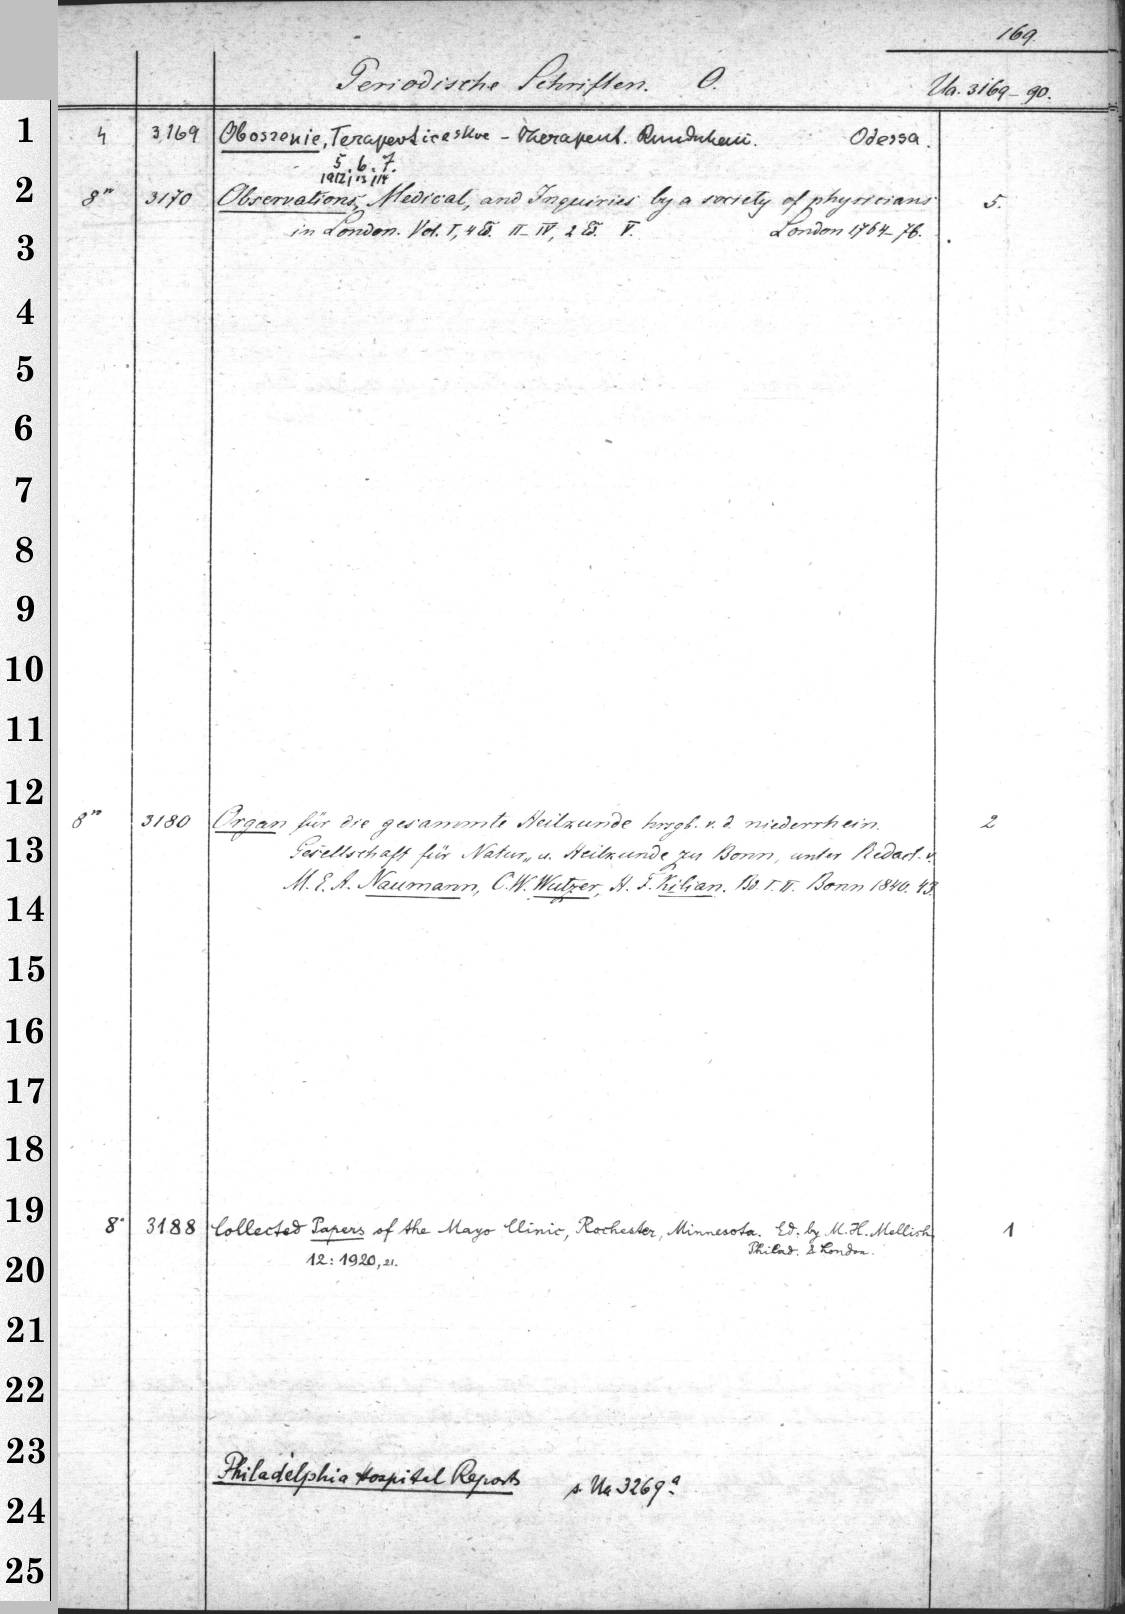 169.
Periodische Schriften. O. Ua. 3169-90.
1 4 3169 Oboszenie, Terapevticeskoe - Therapent. Rundschau. Odessa.
5. 6. 7.
1912; 13; 14.
2 8° 3170 Observations, Medical, and Inquiries by a society of physicians 5.
3 in London. Vol. I, 4 Ed. II-IV, 2 Ed. V. London 1764-76.
4
5
6
7
8
9
10
11
12
8° 3180 Organ für die gesammte Heilkunde hrsgb. v. d. niederrhein. 2
13 Gesellschaft für Natur- u. Heilkunde zu Bonn, unter Redact. v.
14 M. E. A. Naumann, C. W. Wutzer, H. F. Kilian. Bd. I. II. Bonn 1840. 43.
15
16
17
18
19 8° 3188 Collected Papers of the Mayo Clinic, Rochester, Minnesota. Ed. by M. H. Mellish. 1
Philad. & London.
20 12: 1920, 21.
21
22
23 Philadelphia Hospital Reports s. Ua 3269a.
24
25